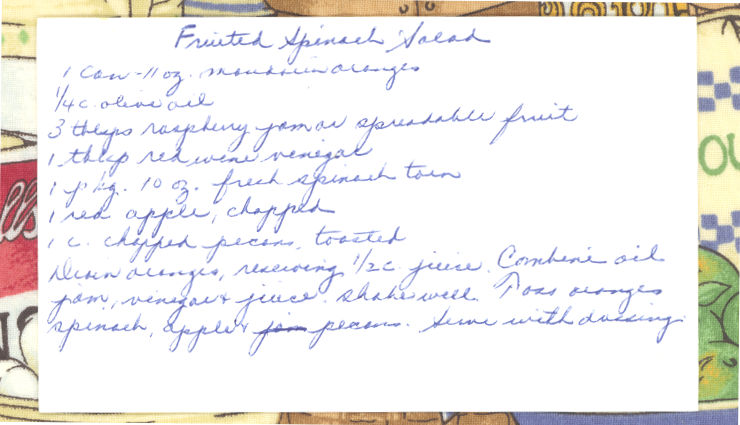 Fruited Spinach Salad
1 can - 11 oz. mandarin oranges
1/4 c. olive oil
3 tblsps raspberry jam or spreadable fruit
1 tblsp red wine vinegar
1 pkg. 10 oz. fresh spinach torn
1 red apple, chopped
1 c. chopped pecans, toasted
Drain oranges, reserving 1/2 c juice. Combine oil
jam, vinegar & juice. Shake well. Toss oranges
spinach, apple & jam pecans. Serve with dressing.
lls
OU